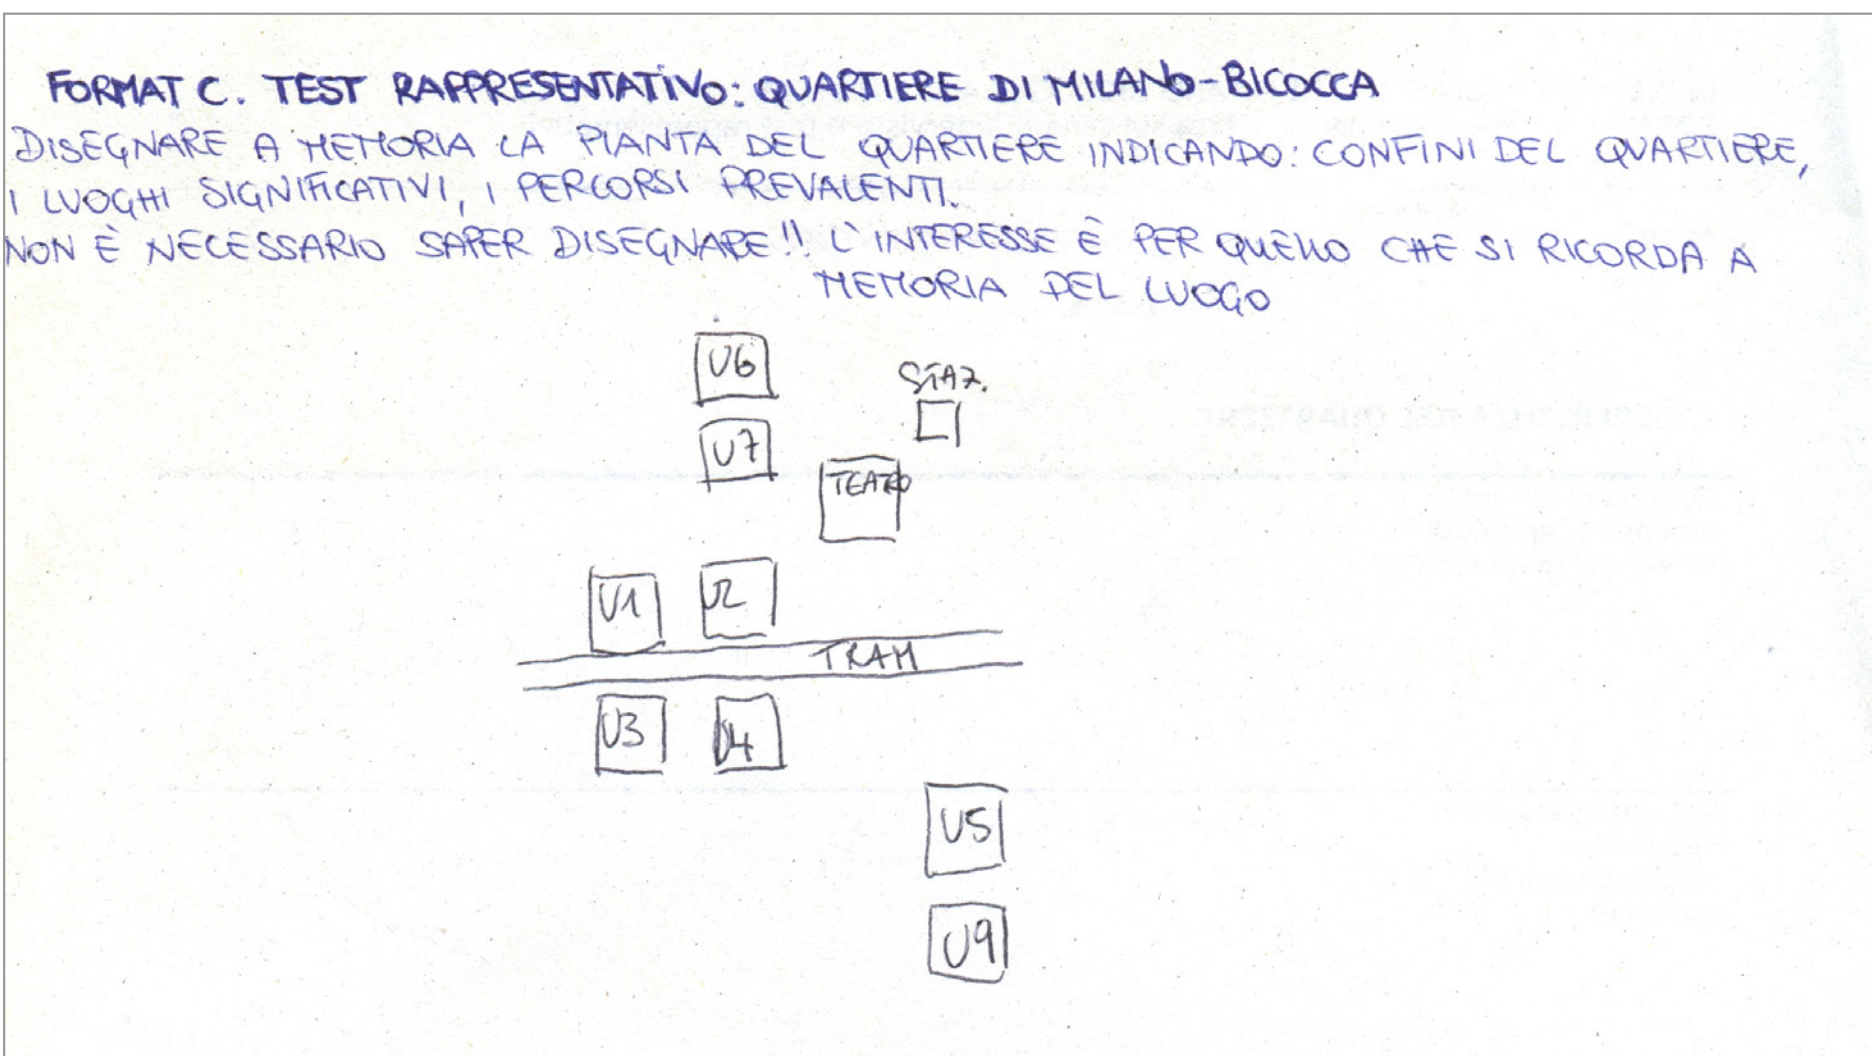 FORMAT C. TEST RAPPRESENTATIVO: QUARTIERE DI MILANO-BICOCCA
DISEGNARE A MEMORIA LA PIANTA DEL QUARTIERE INDICANDO: CONFINI DEL QUARTIERE,
I LUOGHI SIGNIFICATIVI, I PERCORSI PREVALENTI.
NON È NECESSARIO SAPER DISEGNARE!! L'INTERESSE È PER QUELLO CHE SI RICORDA A
MEMORIA DEL LUOGO
U6
STAZ.
U7
TEATRO
U1 U2
TRAM
U3 U4
U5
U9